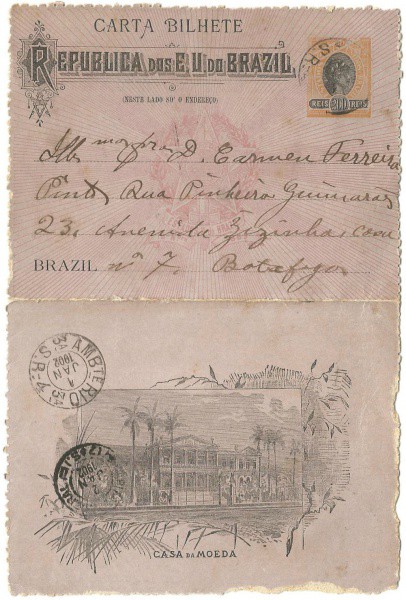 CARTA BILHETE
REPUBLICA DOS E. U. DO BRAZIL.
(NESTE LADO SÓ O ENDEREÇO)
REIS 200 REIS
Illma Exma Sra D. Carmen Ferreira
Pinto Rua Pinheiro Guimarães
23, Avenida Zizinha, casa
BRAZIL nº 7. Botafogo
AMBTE RIO
4 JAN 1902
R.S.
1902
CASA DA MOEDA